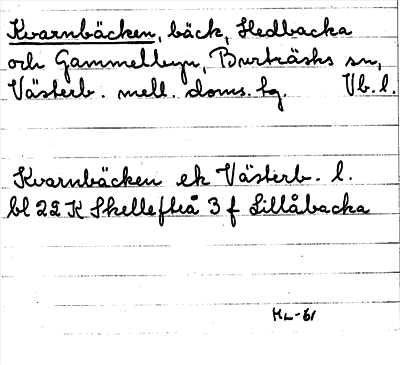 Kvarnbäcken, bäck, Hedbacka
och Gammelbyn, Burträsks sn,
Västerb. mell. doms. tg. Vb. l.
Kvarnbäcken ek Västerb. l.
bl 22 K Skellefteå 3 f Lillåbacka
HL-61